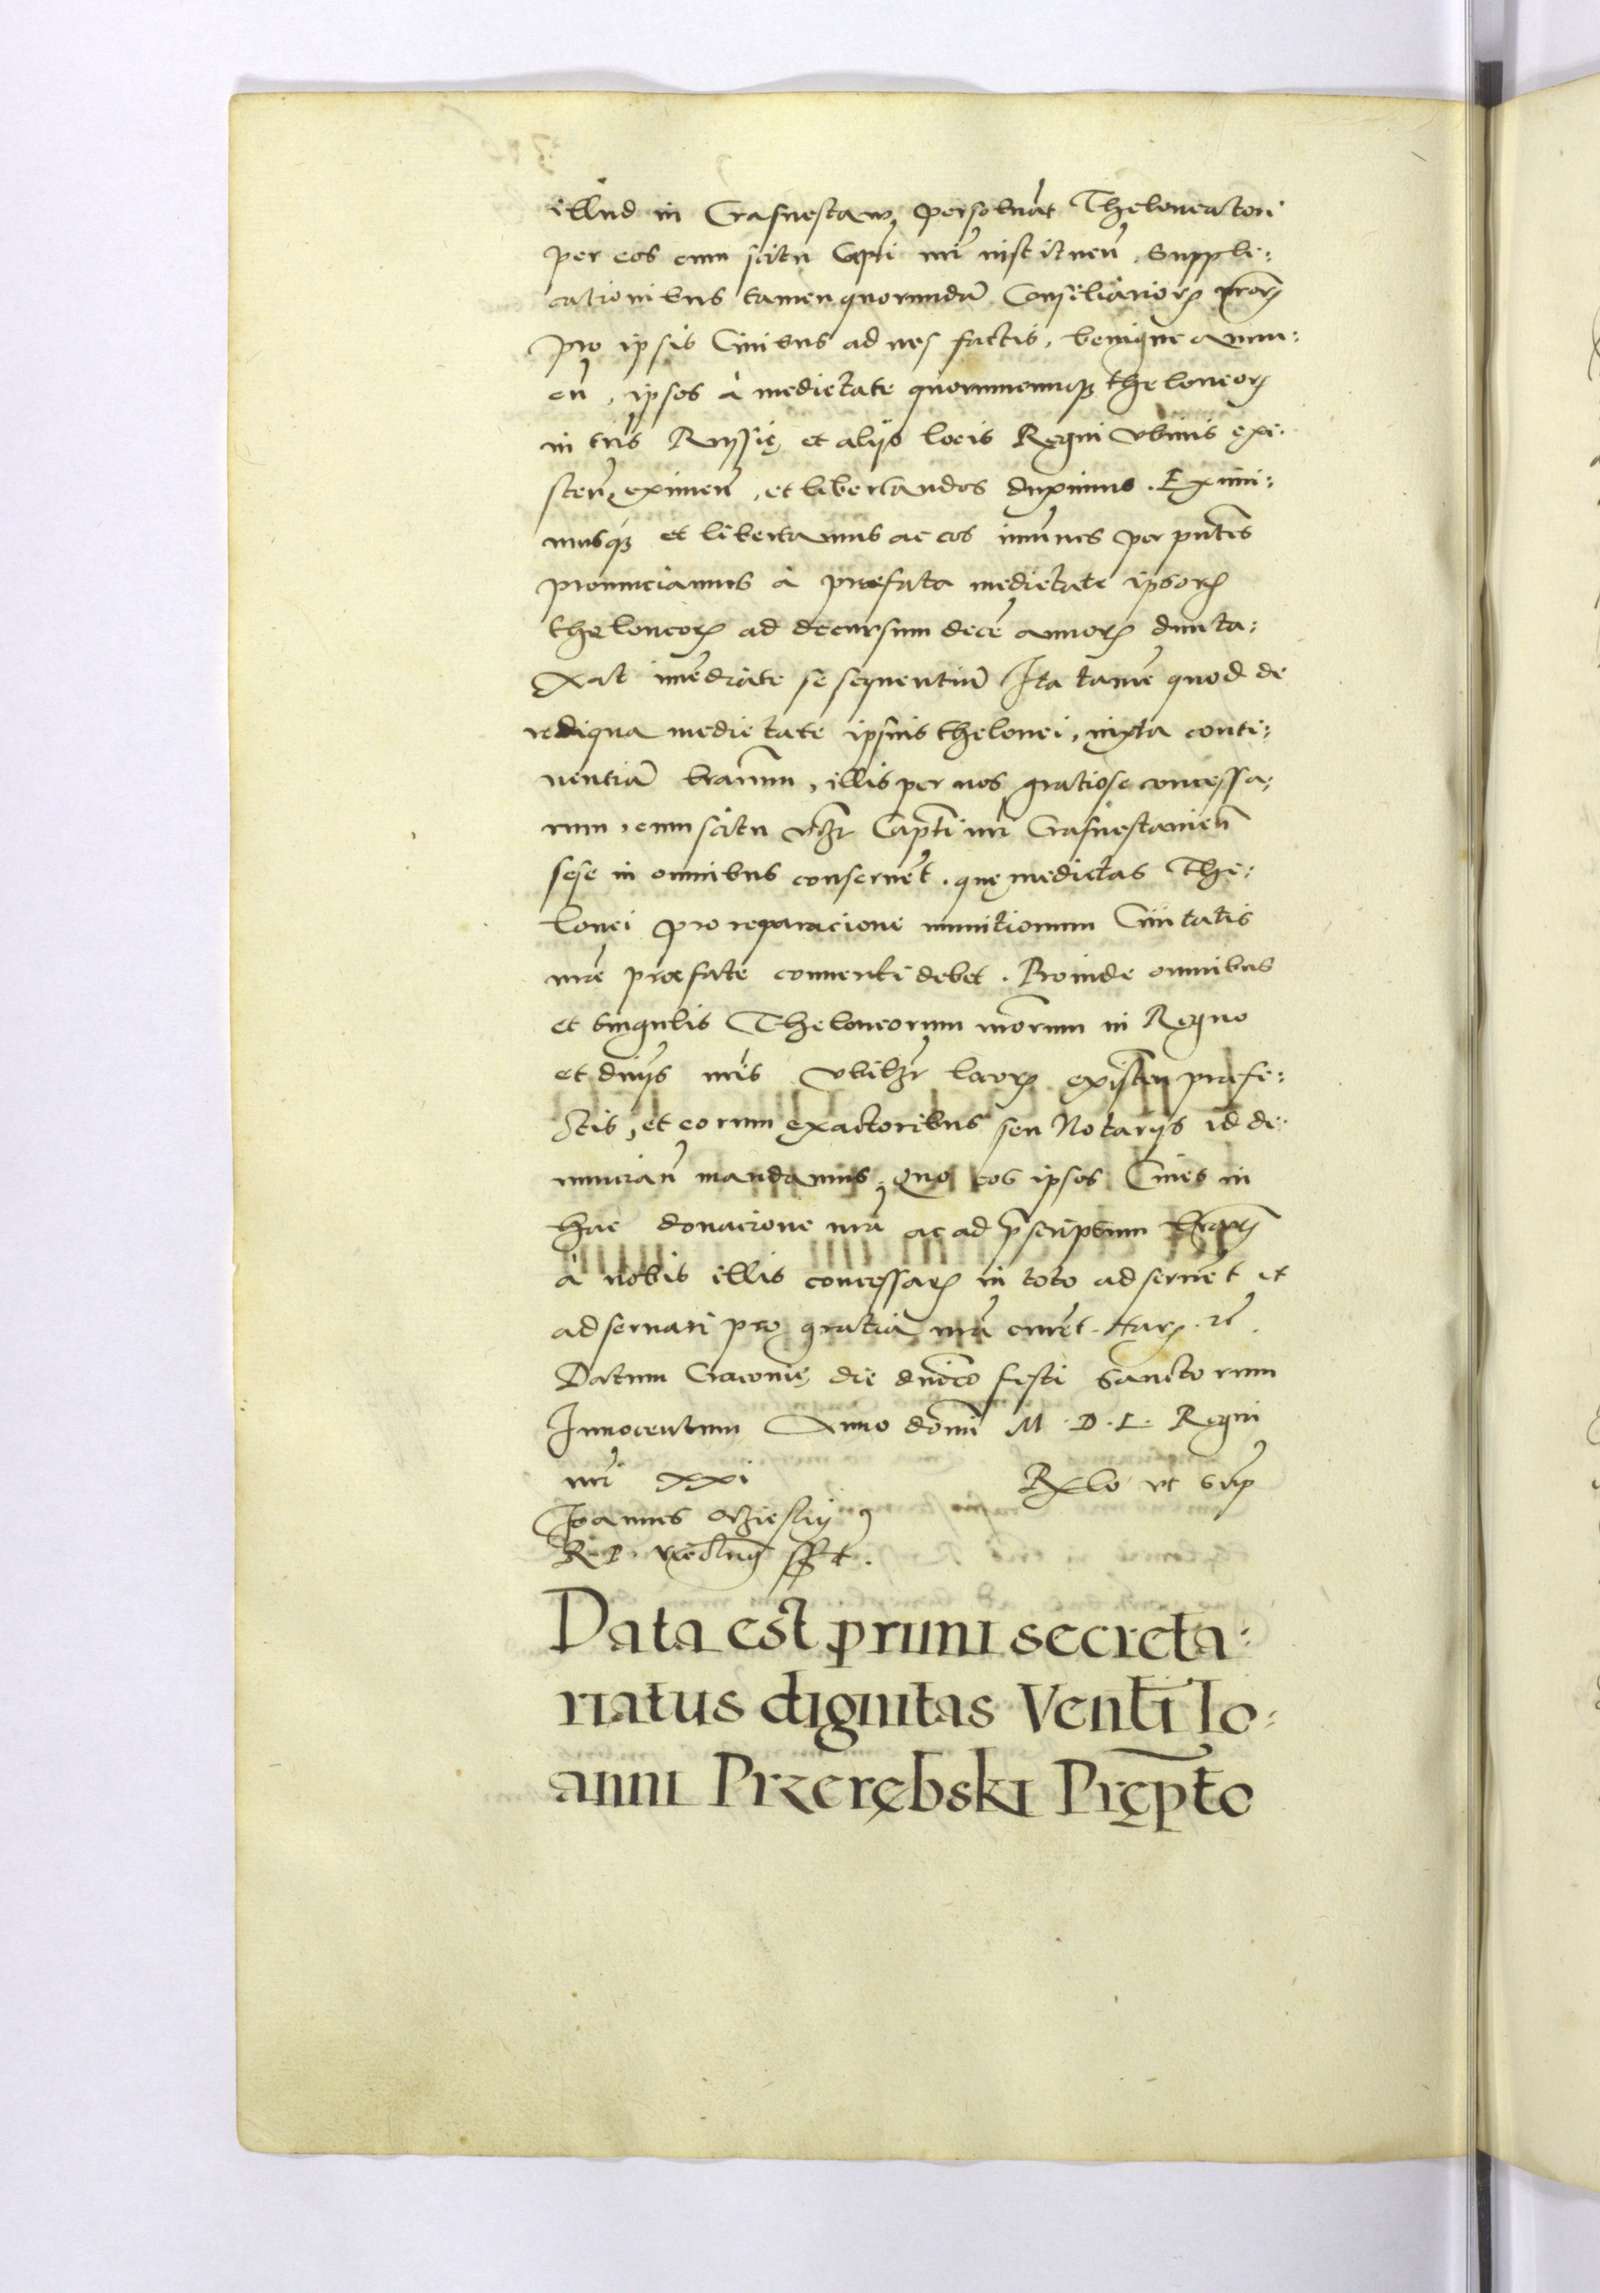 illud in Crasnestaw, persoluat Theloneatori
per eos cum scitu Capti nri instituen. Suppli:
cationibus tamen quorundã Consiliarioꝝ nroꝝ
pro ipsis Ciuibus ad nos factis, benigne annu:
en, ipsos à medietate quorumcunqꝫ theloneoꝝ
in tris Russię et alijs locis Regni vbiuis exi:
sten, eximen, et libertandos duximus. Eximi:
musqꝫ et libertamus ac eos imunes per pntes
pronunciamus à præfata medietate ipsoꝝ
theloneoꝝ ad decursum decẽ annoꝝ dunta:
xat imediate se sequentiũ Ita tamẽ quod de
reliqua medietate ipsius thelonei, iuxta conti:
nentiã lrarum, illis per nos gratiose concessa:
rum, cum scitu Capti nri Crasnestauien
sese in omnibus conseruẽt. quę medietas The:
lonei pro reparacione munitionum Ciuitatis
nre præfate conuerti debet. Proinde omnibus
et singulis Theloneorum nrorum in Regno
et dnijs nris vbilꝫ locoꝝ existen præfe:
ctis, et eorum exactoribus seu Notarijs id de:
nuncian mandamus, quo eos ipsos Ciues in
hac donacione nra ac ad pscriptum lraꝝ
à nobis illis concessaꝝ in toto adseruẽt et
adseruari pro gratia nra curẽt. Haꝝ. rẽ.
Datum Cracouię die dnico festi Sanctorum
Innocentum Anno domi M. D. L. Regni
nri xxi Rxlo ut sup
Joannes Oczieskij
R. P. vicecancellarius sst.
Data est primi secreta:
riatus dignitas Venti Io:
anni Przerębski Prępto